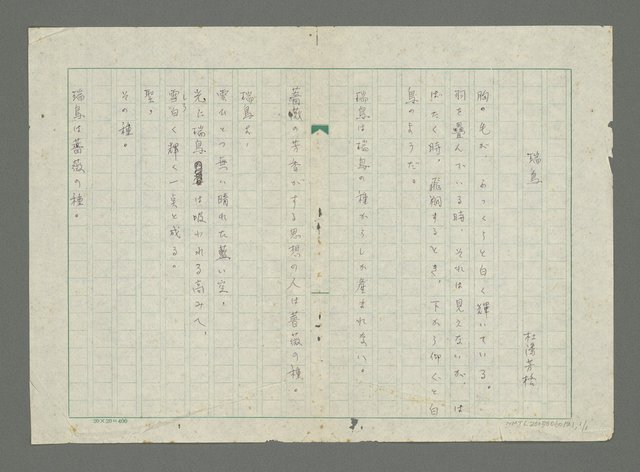 瑞鳥
杜潘芳格
胸の毛が、ふっくらと白く輝いている。
羽を畳んでいる時、それは見えないが、は
ばたく時、飛翔するとき、下から仰ぐと白
鳥のようだ。
瑞鳥は瑞鳥の種からしか産まれない。
薔薇の芳香がする思想の人は薔薇の種。
瑞鳥よ、
雲ひとつ無い晴れた藍い空、
光に瑞鳥は吸われる高みへ、
雪白く輝く一点と成る。
聖、
その種。
瑞鳥は薔薇の種。
20×20=400